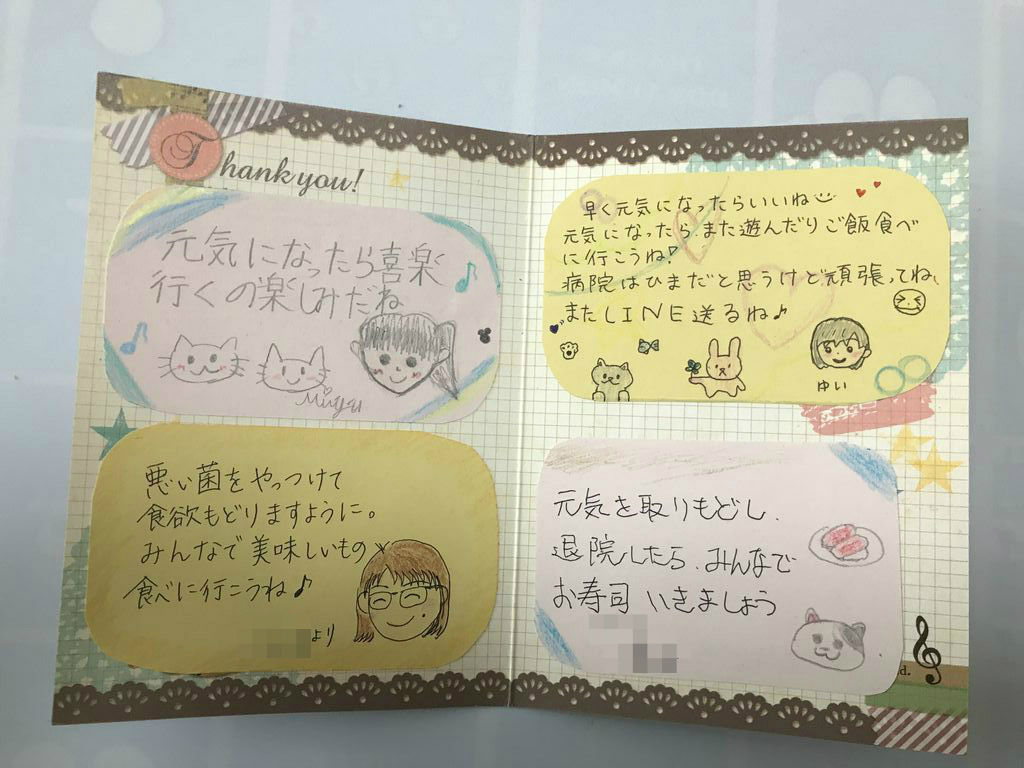 Thank you!
元気になったら喜楽
行くの楽しみだね
Miyu
悪い菌をやっつけて
食欲もどりますように。
みんなで美味しいもの
食べに行こうね♪
より
早く元気になったらいいね
元気になったら、また遊んだりご飯食べ
に行こうね♪
病院はひまだと思うけど頑張ってね、
またLINE送るね♪
ゆい
元気を取りもどし、
退院したら、みんなで
お寿司 いきましょう
d.